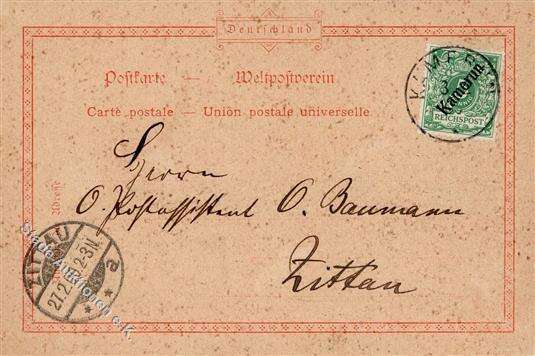 Deutschland
Postkarte — Weltpostverein
Carte postale — Union postale universelle
KAMERUN
Kamerun
REICHSPOST
Herrn
O. Postassistent O. Baumann
Zittau
ZITTAU
27.2. 2-3N.
a